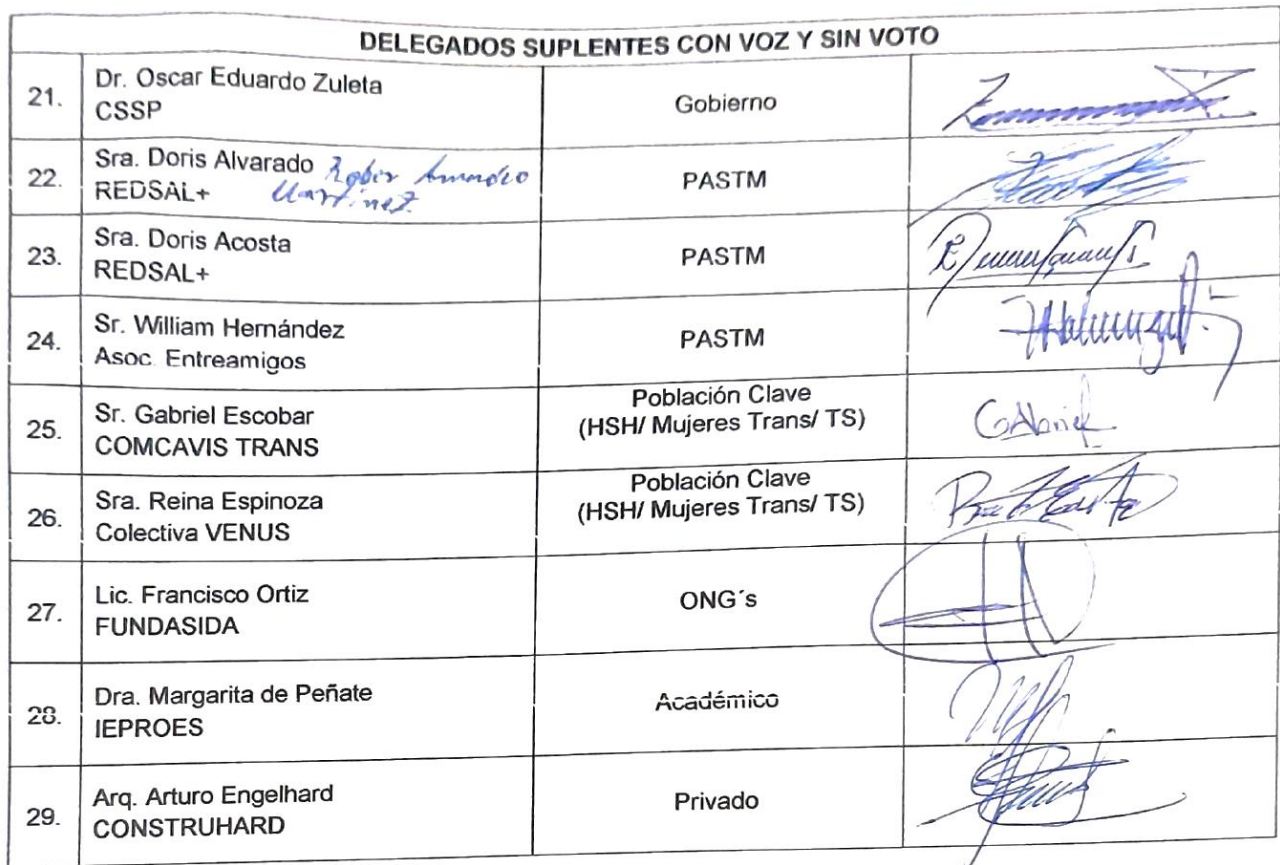 DELEGADOS SUPLENTES CON VOZ Y SIN VOTO
21.
Dr. Oscar Eduardo Zuleta
CSSP
Gobierno
22.
Sra. Doris Alvarado
REDSAL+ Martinez.
PASTM
23.
Sra. Doris Acosta
REDSAL+
PASTM
24.
Sr. William Hernández
Asoc. Entreamigos
PASTM
25.
Sr. Gabriel Escobar
COMCAVIS TRANS
Población Clave
(HSH/ Mujeres Trans/ TS)
GAbriel
26.
Sra. Reina Espinoza
Colectiva VENUS
Población Clave
(HSH/ Mujeres Trans/ TS)
27.
Lic. Francisco Ortiz
FUNDASIDA
ONG´s
28.
Dra. Margarita de Peñate
IEPROES
Académico
29.
Arq. Arturo Engelhard
CONSTRUHARD
Privado